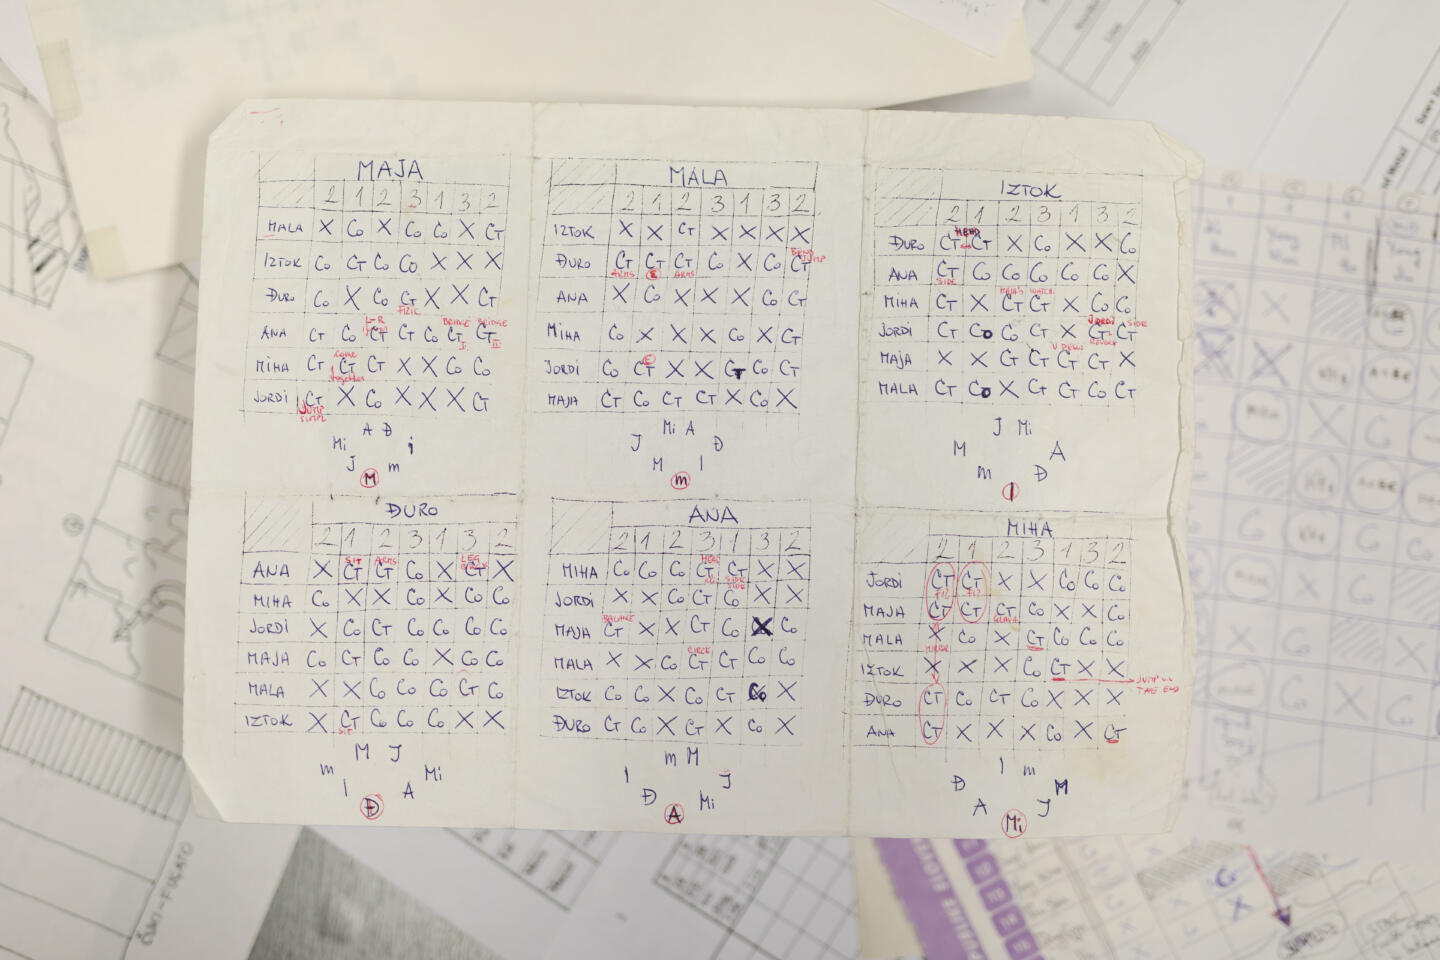 MAJA
2 1 2 3 1 3 2
MALA X Co X Co Co X CT
IZTOK Co CT Co Co X X X
ĐURO Co X Co CT X X CT
FIZIK
L-R BRIDGE BRIDGE
ANA CT Co CT CT Co CT CT
I. II.
come
MIHA CT CT CT X X Co Co
together
JORDI CT X Co X X X CT
JUMP
SIMPL
A Đ
Mi i
J m
M
MALA
2 1 2 3 1 3 2
IZTOK X X CT X X X X
BEND JUMP
ĐURO CT CT CT Co X Co CT
ARMS E ARMS
ANA X Co X X X Co CT
MIHA Co X X X Co X CT
E
JORDI Co CT X X CT Co CT
MAJA CT Co CT CT X Co X
Mi A
J Đ
M I
m
IZTOK
2 1 2 3 1 3 2
HEAD
ĐURO CT CT X Co X X Co
ANA CT Co Co Co Co Co X
SIDE
MIHA CT X CT CT X Co Co
JORDI SIDE
JORDI CT Co Co CT X CT CT
MAJA X X CT CT CT CT X
MALA CT Co X CT CT Co CT
J Mi
M A
m Đ
I
ĐURO
2 1 2 3 1 3 2
SIT ARMS LEG
ANA X CT CT Co X CT X
MIHA Co X X Co X Co Co
JORDI X Co CT Co Co Co Co
MAJA Co CT Co Co X Co Co
MALA X X Co Co Co CT Co
IZTOK X CT Co Co Co X X
SIT
M J
m Mi
I A
Đ
ANA
2 1 2 3 1 3 2
MIHA Co Co Co CT CT X X
SIDE
SIDE
JORDI X X Co CT Co X X
BALANCE
MAJA CT X X CT Co X Co
CIRCE
MALA X X Co CT CT Co Co
IZTOK Co Co X Co CT Co X
ĐURO CT Co X CT X Co X
m M
I J
Đ Mi
A
MIHA
2 1 2 3 1 3 2
JORDI CT CT X X Co Co Co
MAJA CT CT CT Co X X Co
MALA X Co X CT Co Co Co
MIRROR
IZTOK X X X Co CT X X
JUMP IN
THE END
ĐURO CT Co CT Co X X X
ANA CT X X X Co X CT
I m
Đ M
A J
Mi